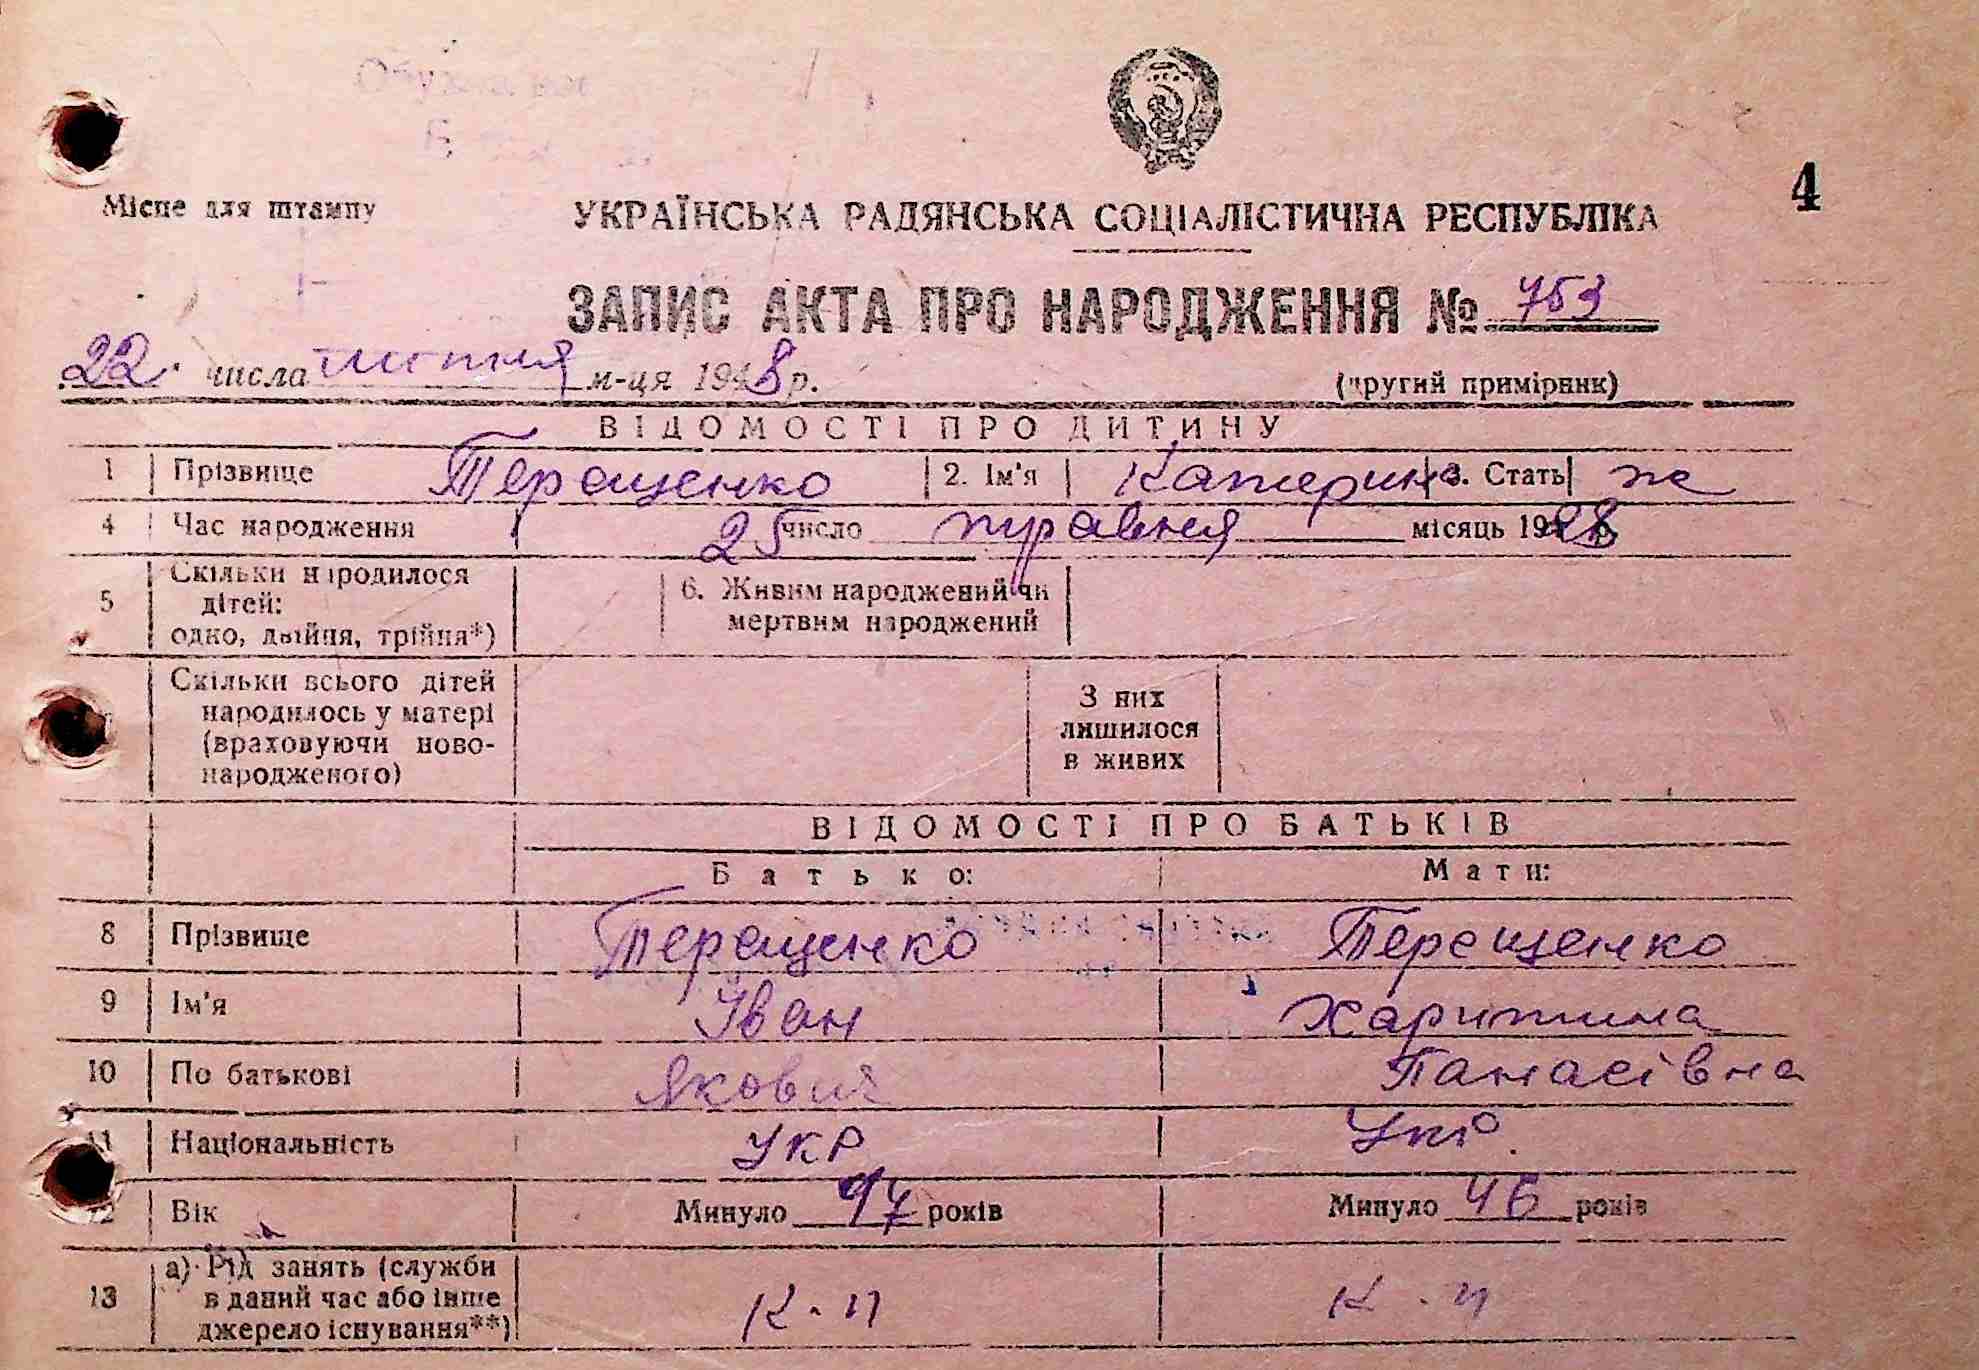 4
Місце для штампу
УКРАЇНСЬКА РАДЯНСЬКА СОЦІАЛІСТИЧНА РЕСПУБЛІКА
ЗАПИС АКТА ПРО НАРОДЖЕННЯ № 753
22 числа липня м-ця 1948 р.
(другий примірник)
ВІДОМОСТІ ПРО ДИТИНУ
1 Прізвище Терещенко 2. Ім'я Катерина 3. Стать ж
4 Час народження 25 число травня місяць 1928
5 Скільки народилося дітей: одко, двійня, трійня*) 6. Живим народжений чи мертвим народжений
Скільки всього дітей народилось у матері (враховуючи новонародженого) З них лишилося в живих
ВІДОМОСТІ ПРО БАТЬКІВ
Батько: Мати:
8 Прізвище Терещенко Терещенко
9 Ім'я Іван Харитина
10 По батькові Якович Панасівна
11 Національність Укр Укр.
12 Вік Минуло 47 років Минуло 46 років
13 а) Рід занять (служби в даний час або інше джерело існування**) К-п К-п